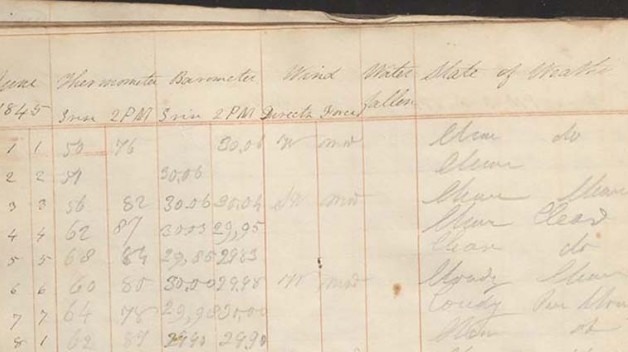 June Thermometer Barometer Wind Water State of Weathe
1845 Srise 2 PM Srise 2 PM Directn Force fallen
1 1 50 76 30,06 W mod Clear do
2 2 59 30.06 Clear
3 3 56 82 30.06 30.04 SW mod Clear Clear
4 4 62 87 30.03 29,95 Clear Clear
5 5 68 84 29,85 2983 Clear do
6 6 60 80 30.00 29,98 W mod Cloudy Clear
7 7 64 78 29,98 30,00 Cloudy
8 1 62 29.90 do